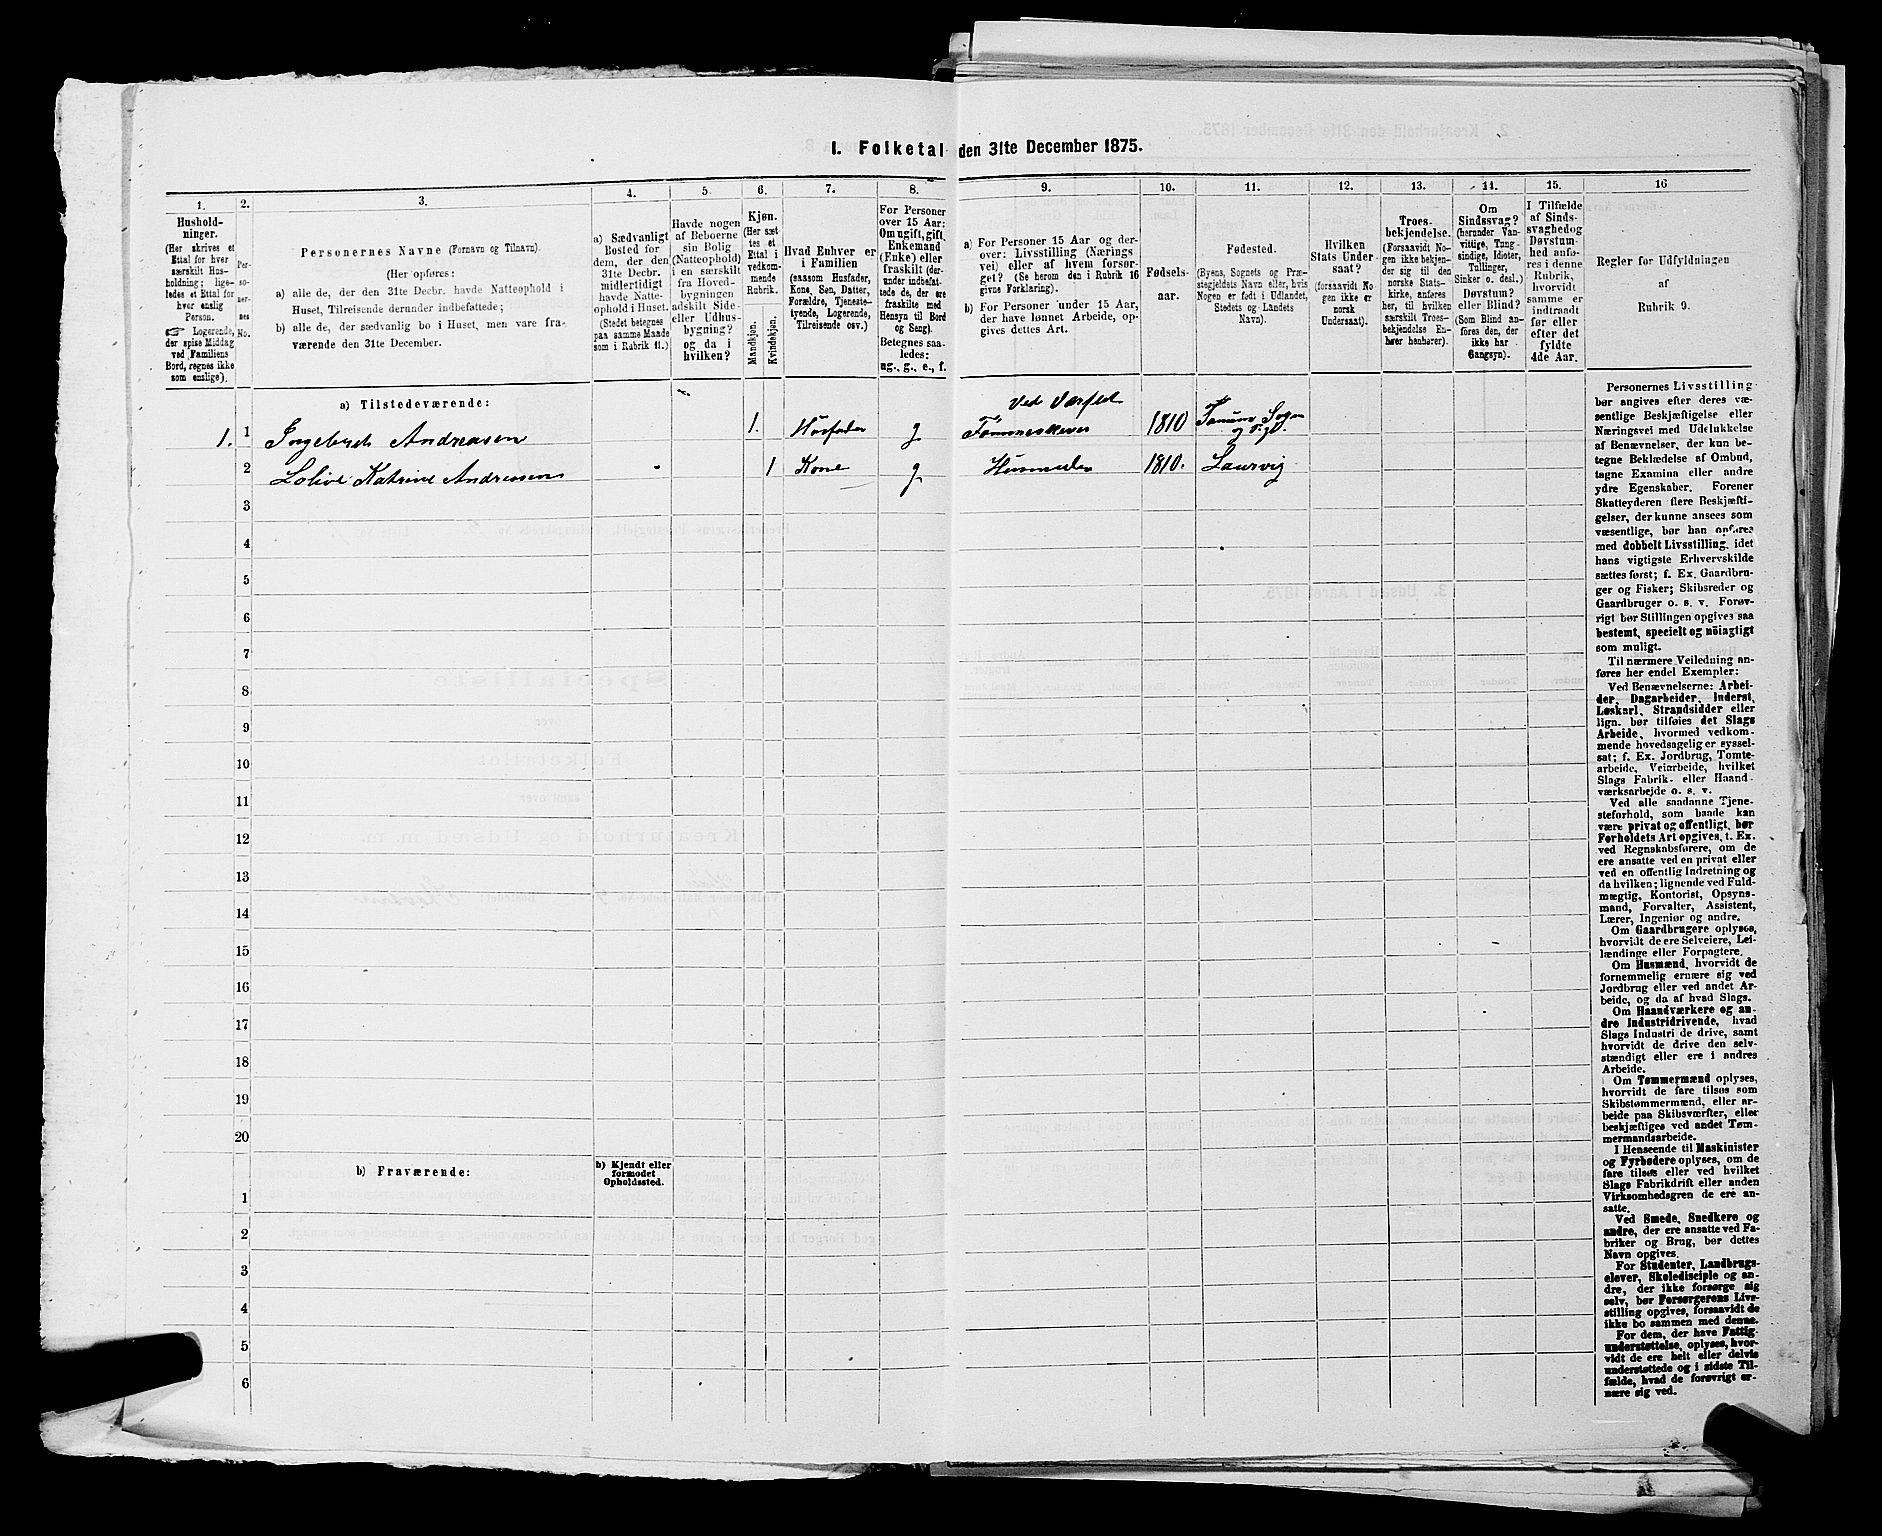 I. Folketal den 31te December 1875.
1. 2. 3. 4. 5. 6. 7. 8. 9. 10. 11. 12. 13. 14. 15. 16
Hushold-
ninger.
(Her skrives et
Ettal for hver
særskilt Hus-
holdning; lige-
ledes et Ettal for
hver enslig
Person.
☞ Logerende,
der spise Middag
ved Familiens
Bord, regnes ikke
som enslige).
Per-
so-
ner-
nes
No.
Personernes Navne (Fornavn og Tilnavn).
(Her opføres:
a) alle de, der den 31te Decbr. havde Natteophold i
Huset, Tilreisende derunder indbefattede;
b) alle de, der sædvanlig bo i Huset, men vare fra-
værende den 31te December.
a) Sædvanligt
Bosted for
dem, der den
31te Decbr.
midlertidigt
havde Natte-
ophold i Huset.
(Stedet betegnes
paa samme Maade
som i Rubrik 11.)
Havde nogen
af Beboerne
sin Bolig
(Natteophold)
i en særskilt
fra Hoved-
bygningen
adskilt Side-
eller Udhus-
bygning?
og da i
hvilken?
Kjøn.
(Her sæt-
tes et
Ettal i
vedkom-
mende
Rubrik.
Mandkjøn.
Kvindekjøn.
Hvad Enhver er
i Familien
(saasom Husfader,
Kone, Søn, Datter,
Forældre, Tjeneste-
tyende, Logerende,
Tilreisende osv.)
For Personer
over 15 Aar:
Om ugift, gift,
Enkemand
(Enke) eller
fraskilt (der-
under indbefat-
tede de, der ere
fraskilte med
Hensyn til Bord
og Seng).
Betegnes saa-
ledes:
ug., g., e., f.
a) For Personer 15 Aar og der-
over: Livsstilling (Nærings
vei) eller af hvem forsør-
get? (Se herom den i Rubrik 16
givne Forklaring).
b) For Personer under 15 Aar,
der have lønnet Arbeide, op-
gives dettes Art.
Fødsels-
aar.
Fødested.
(Byens, Sognets og Præ-
stegjeldets Navn eller, hvis
Nogen er født i Udlandet,
Stedets og Landets
Navn).
Hvilken
Stats Under-
saat?
(forsaavidt No-
gen ikke er
norsk
Undersaat).
Troes-
bekjendelse.
(Forsaavidt No-
gen ikke bekjen-
der sig til den
norske Stats-
kirke, anføres
her, til hvilken
særskilt Troes-
bekjendelse En-
hver henhører).
Om
Sindssvag?
(herunder Van-
vittige, Tung-
sindige, Idioter,
Tullinger,
Sinker o. desl.)
Døvstum?
eller Blind?
(Som Blind an-
føres den, der
ikke har
Gangsyn).
I Tilfælde
af Sinds-
svaghed og
Døvstum-
hed anfø-
res i denne
Rubrik,
hvorvidt
samme er
indtraadt
før eller
efter det
fyldte
4de Aar.
Regler for Udfyldningen
af
Rubrik 9.
a) Tilstedeværende:
1. 1 Ingebret Andreasen 1. Husfader g Tømmermand Ved Værftet 1810 Tanum Sogn
2 Katrine Andreasen 1 Kone g 1810. Laurvig
3
4
5
6
7
8
9
10
11
12
13
14
15
16
17
18
19
20
b) Fraværende:
b) Kjendt eller
formodet
Opholdssted.
1
2
3
4
5
6
Personernes Livsstilling
bør angives efter deres væ-
sentlige Beskjæftigelse eller
Næringsvei med Udelukkelse
af Benævnelser, der kun be-
tegne Beklædelse af Ombud,
tagne Examina eller andre
ydre Egenskaber. Forener
Skatteyderen flere Beskjæfti-
gelser, der kunne ansees som
væsentlige, bør han opføres
med dobbelt Livsstilling, idet
hans vigtigste Erhvervskilde
sættes først; f. Ex. Gaardbru-
ger og Fisker; Skibsreder og
Gaardbruger o. s. v. Forøv-
rigt bør Stillingen opgives saa
bestemt, specielt og nöiagtigt
som muligt.
Til nærmere Veiledning an-
føres her endel Exempler:
Ved Benævnelserne: Arbei-
der, Dagarbeider, Inderst,
Løskarl, Strandsidder eller
lign. bør tilføies det Slags
Arbeide, hvormed vedkom-
mende hovedsagelig er syssel-
sat; f. Ex. Jordbrug, Tomte-
arbeide, Veiarbeide, hvilket
Slags Fabrik- eller Haand-
værksarbejde o. s. v.
Ved alle saadanne Tjene-
steforhold, som baade kan
være privat og offentligt, bør
Forholdets Art opgives, t. Ex.
ved Regnskabsførere, om de
ere ansatte ved en privat eller
ved en offentlig Indretning og
da hvilken; lignende ved Fuld-
mægtig, Kontorist, Opsyns-
mand, Forvalter, Assistent,
Lærer, Ingeniør og andre.
Om Gaardbrugere oplyses,
hvorvidt de ere Selveiere, Lei-
lændinge eller Forpagtere.
Om Husmænd, hvorvidt de
fornemmelig ernære sig ved
Jordbrug eller ved andet Ar-
beide, og da af hvad Slags.
Om Haandværkere og an-
dre Industridrivende, hvad
Slags Industri de drive, samt
hvorvidt de drive den selv-
stændigt eller ere i andres
Arbeide.
Om Tømmermænd oplyses,
hvorvidt de fare tilsøs som
Skibstømmermænd, eller ar-
beide paa Skibsværfter, eller
beskjæftiges ved andet Tøm-
mermandsarbeide.
I Henseende til Maskinister
og Fyrbødere oplyses, om de
fare tilsøs eller ved hvilket
Slags Fabrikdrift eller anden
Virksomhedsgren de ere an-
satte.
Ved Smede, Snedkere og
andre, der ere ansatte ved Fa-
briker og Brug, bør dettes
Navn opgives.
For Studenter, Landbrugs-
elever, Skoledisciple og an-
dre, der ikke forsørge sig
selv, bør Forsørgerens Livs-
stilling opgives, forsaavidt de
ikke bo sammen med denne.
For dem, der have Fattig-
understøttelse, oplyses, hvor-
vidt de ere helt eller delvis
understøttede og i sidste Til-
fælde, hvad de forøvrigt er-
nære sig ved.